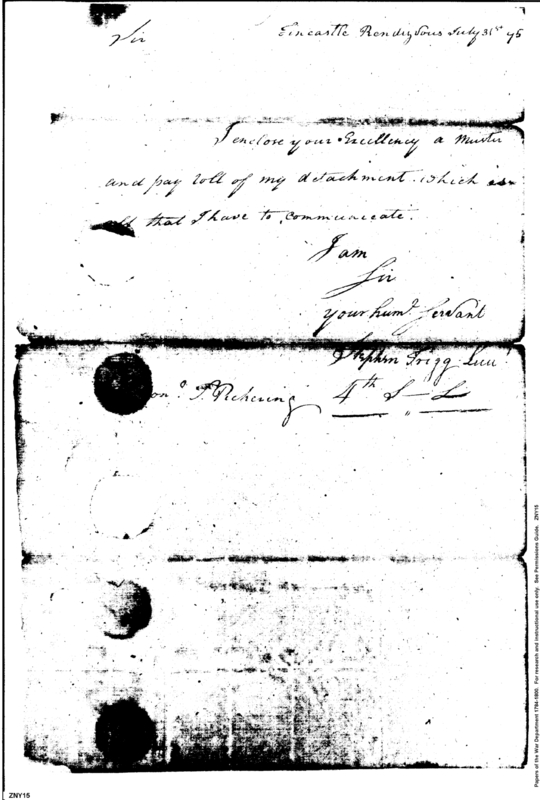 Sir
Fincastle Rendezvous July 31st 95
I enclose your Excellency a Muster
and pay roll of my detachment which is
all that I have to communicate.
I am
Sir
your humt. Servant
Stephen Trigg Lieut
onl. T. Pickering 4th S-L
Papers of the War Department 1784-1800. For research and instructional use only. See Permissions Guide. ZNY15
ZNY15